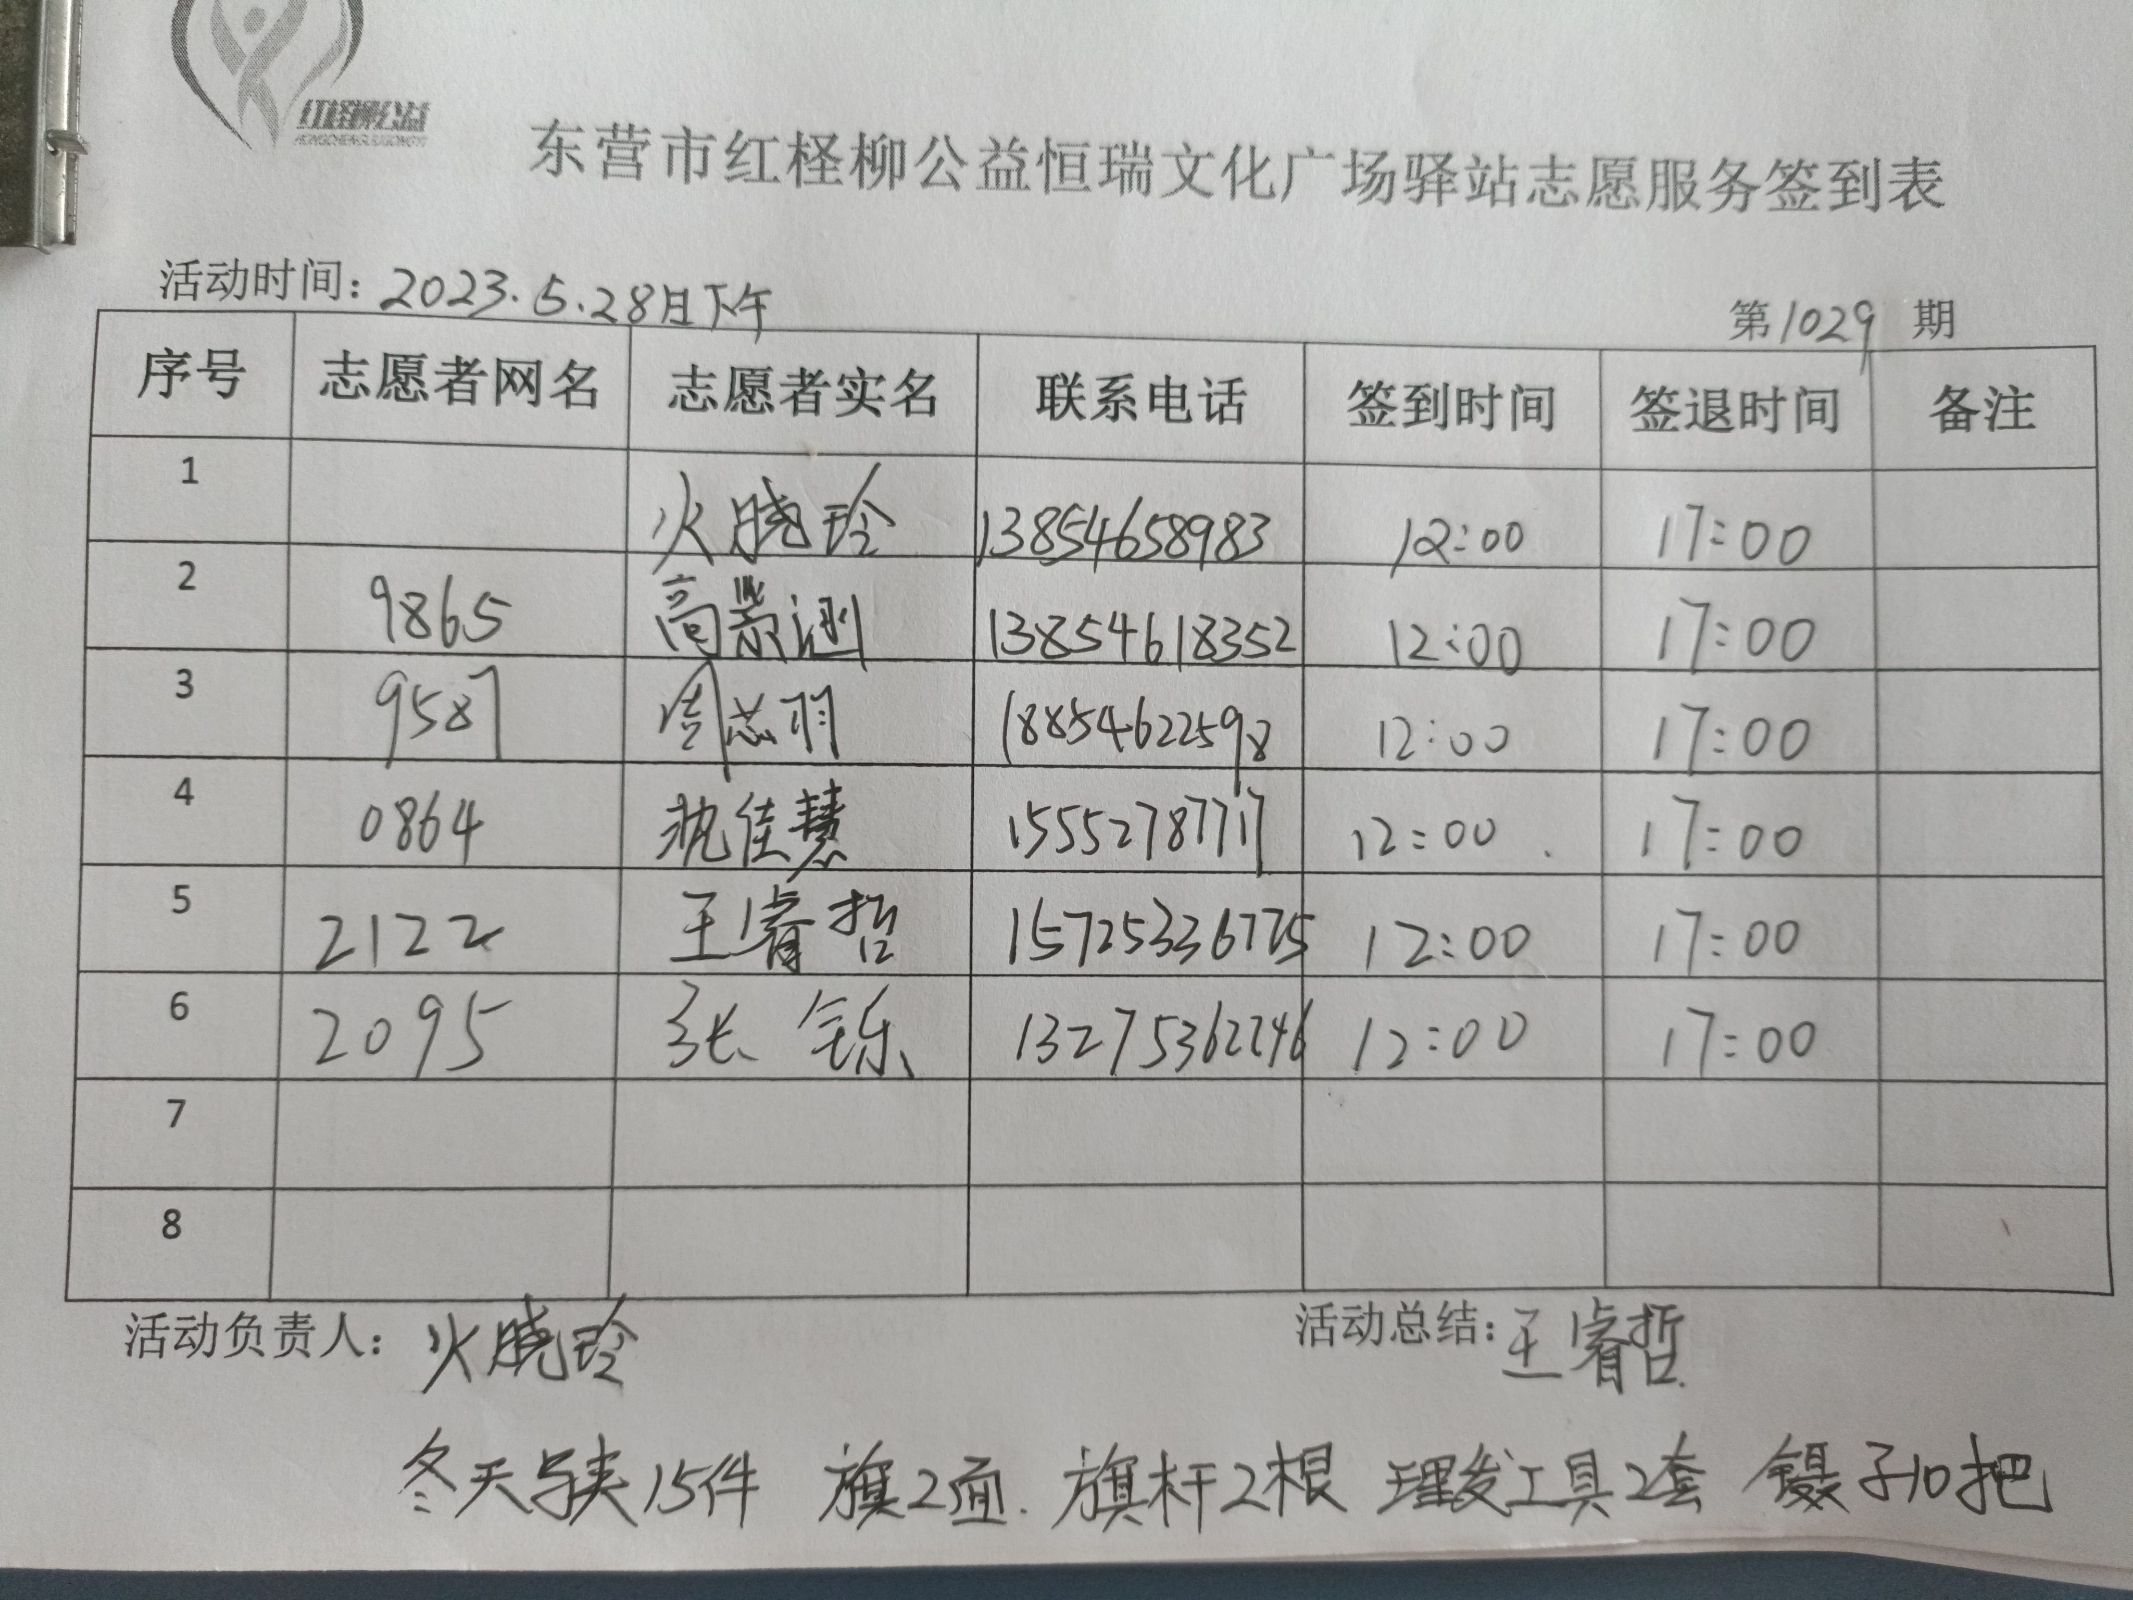 红柽柳公益
HONGCHENGLIUGONGYI
东营市红柽柳公益恒瑞文化广场驿站志愿服务签到表
活动时间：2023.5.28日下午
第1029期
序号 志愿者网名 志愿者实名 联系电话 签到时间 签退时间 备注
1 火晓玲 13854658983 12:00 17:00
2 9865 高 涵 13854618352 12:00 17:00
3 9587 周芯羽 18854622598 12:00 17:00
4 0864 佳慧 12:00 17:00
5 2122 王睿哲 15725336775 12:00 17:00
6 2095 张铄 13275362246 12:00 17:00
7
8
活动负责人：火晓玲 活动总结：王睿哲
冬天 15件 旗2面. 旗杆2根 理发工具2套 镊子10把